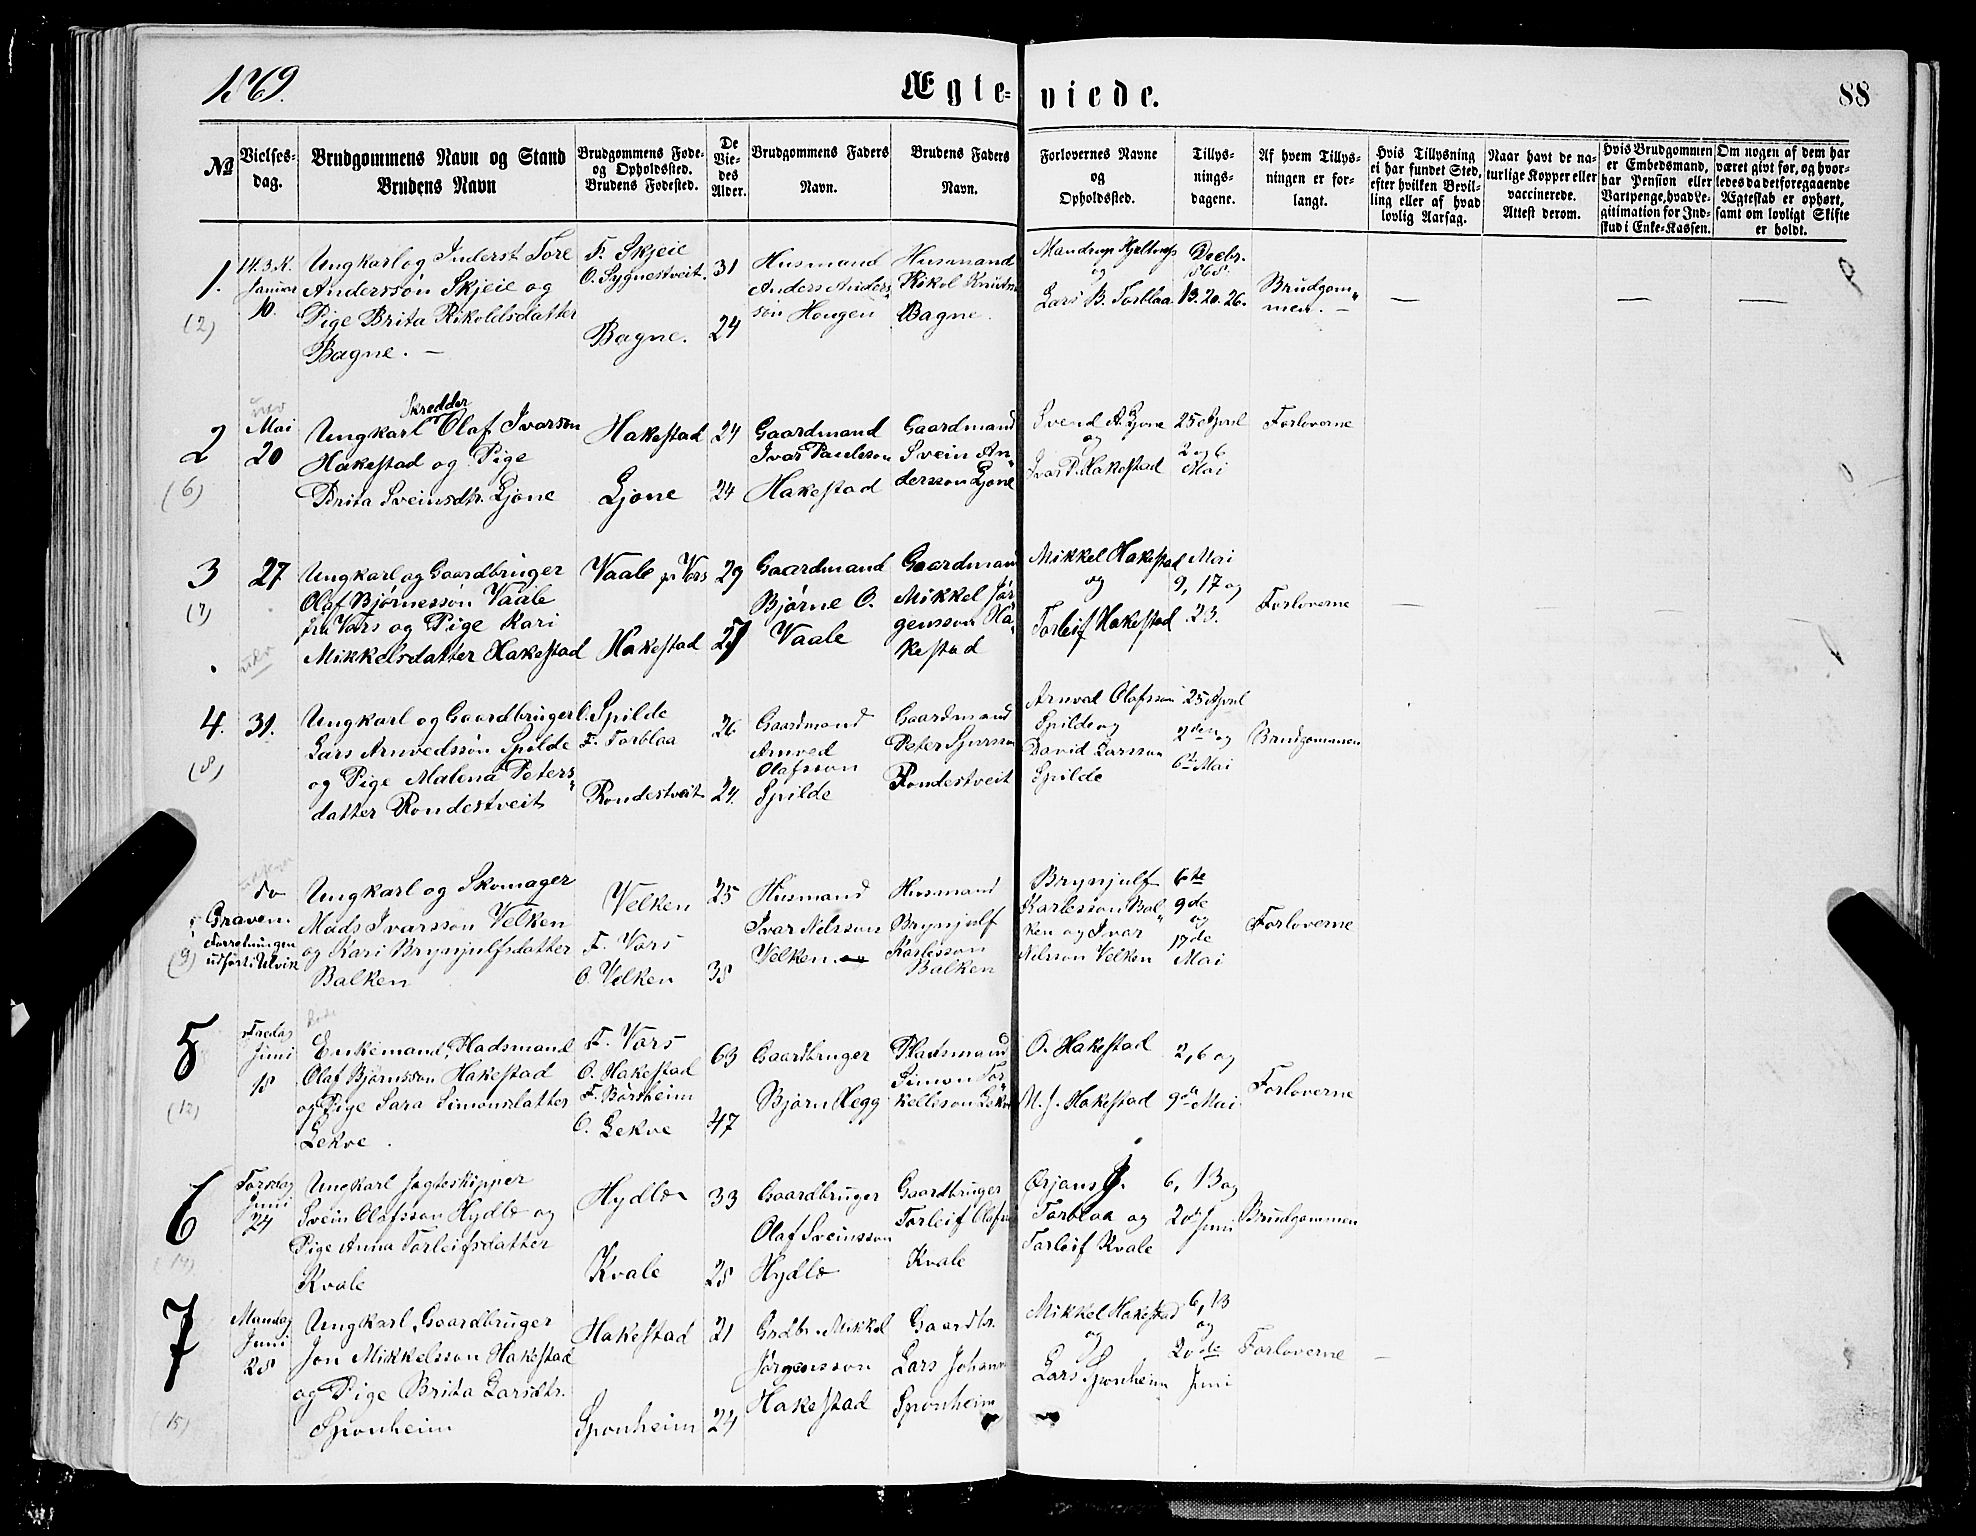 1869.
Ægteviede.
88
№
Vielsesdag.
Brudgommens Navn og Stand
Brudens Navn
Brudgommens Føde-
og Opholdssted.
Brudens Fødested.
De
Vie-
des
Alder.
Brudgommens Faders
Navn.
Brudens Faders
Navn.
Forlovernes Navne
og
Opholdssted.
Tillys-
nings-
dagene.
Af hvem Tillys-
ningen er for-
langt.
Hvis Tillysning
ei har fundet Sted,
efter hvilken Bevil-
ling eller af hvad
lovlig Aarsag.
Naar havt de na-
turlige Kopper eller
vaccinerede.
Attest derom.
Hvis Brudgommen
er Embedsmand,
har Pension eller
Vartpenge, hvad Le-
gitimation for Ind-
skud i Enke-Kassen.
Om nogen af dem har
været givt før, og hvor-
ledes da det foregaaende
Ægteskab er ophørt,
samt om lovligt Skifte
er holdt.
1.
(2)
14.3.K.
Januar
10.
Ungkarl og Inderst Tore
Anderssøn Skjeie og
Pige Brita Rikoldsdatter
Bagne. —
F. Skjeie
O. Sygnestveit.
Bagne.
31
24
Husmand
Anders Anders-
søn Hougen
Husmand
Rikol Knuts
Bagne.
Mandrup Hjeltnes
og
Lars B. Torblaa.
Decbr.
868.
13. 20. 26.
Brudgom-
men. —
—
—
—
2
(6)
Mai
20
Skredder
Ungkarl Olaf Ivarson
Hakestad og Pige
Brita Sveinsdtr. Ljone
Hakestad
Ljone
24
24
Gaardmand
Ivar Paulsson
Hakestad
Gaardmand
Svein An-
dersson Ljone
Svend A. Ljone
og
Ivar P. Hakestad
25 April
2 og 6
Mai
Forloverne
3
(7)
27
Ungkarl og Gaardbruger
Olaf Bjørnesson Vaale
fra Vors og Pige Kari
Mikkelsdatter Hakestad
Vaale p Vors
Hakestad
29
27
Gaardmand
Bjørne O.
Vaale
Gaardmand
Mikkel Jør-
gensson Ha-
kestad
Mikkel Hakestad
og
Torleif Hakestad
Mai
9, 17 og
23.
Forloverne
—
4.
(8)
31.
Ungkarl og Gaardbruger
Lars Arnvedssøn Spilde
og Pige Malena Peters-
datter Rondestveit
O. Spilde
F. Torblaa
Rondestveit
26
24.
Gaardmand
Arnved
Olafsson
Spilde
Gaardmand
Peter Sjursson
Rondestveit
Arnved Olafsson
Spilde og
David Larsson
Spilde
25 April
2den og
6te Mai
Brudgommen
(9)
do
Graven.
Forretningen
udført i Ulvik
Ungkarl og Skomager
Mads Ivarsson Velken
og Kari Brynjulfsdatter
Balken
Velken
F. Vors
O. Velken
25
38
Husmand
Ivar Nilsson
Velken
Husmand
Brynjulf
Karlesson
Balken
Brynjulf
Karlesson Bal-
ken og Ivar
Nilsson Velken
6te
9de
og
17de
Mai
Forloverne
5
(12)
Fredag
Juni
18
Enkemand, Pladsmand
Olaf Bjørnsson Hakestad
og Pige Sara Simonsdatter
Lekve.
F. Vors
O. Hakestad
F. Børsheim
O. Lekve
63
47
Gaardbruger
Bjørn Hegg
Pladsmand
Simon Tor-
kellsson Lekve
O. Hakestad
M. J. Hakestad
2, 6 og
9de Mai
Forloverne
6
(14)
Torsdag
Juni
24
Ungkarl Jagteskipper
Svein Olafsson Hydle og
Pige Anna Torleifsdatter
Kvale
Hydle
Kvale
33
28
Gaardbruger
Olaf Sveinsson
Hydle
Gaardbruger
Torleif Olafs
Kvale
Ørjans J.
Torblaa og
Torleif Kvale
6, 13 og
20de Juni
Brudgommen
7
(15)
Mandag
Juni
28
Ungkarl, Gaardbruger
Jon Mikkelsson Hakestad
og Pige Brita Larsdtr.
Sponheim
Hakestad
Sponheim
21
24
Grdbr. Mikkel
Jørgensson
Hakestad
Gaardbr.
Lars Johann
Sponheim
Mikkel Hakestad
og
Lars Sponheim
6, 13
og
20de
Juni
Forloverne
—